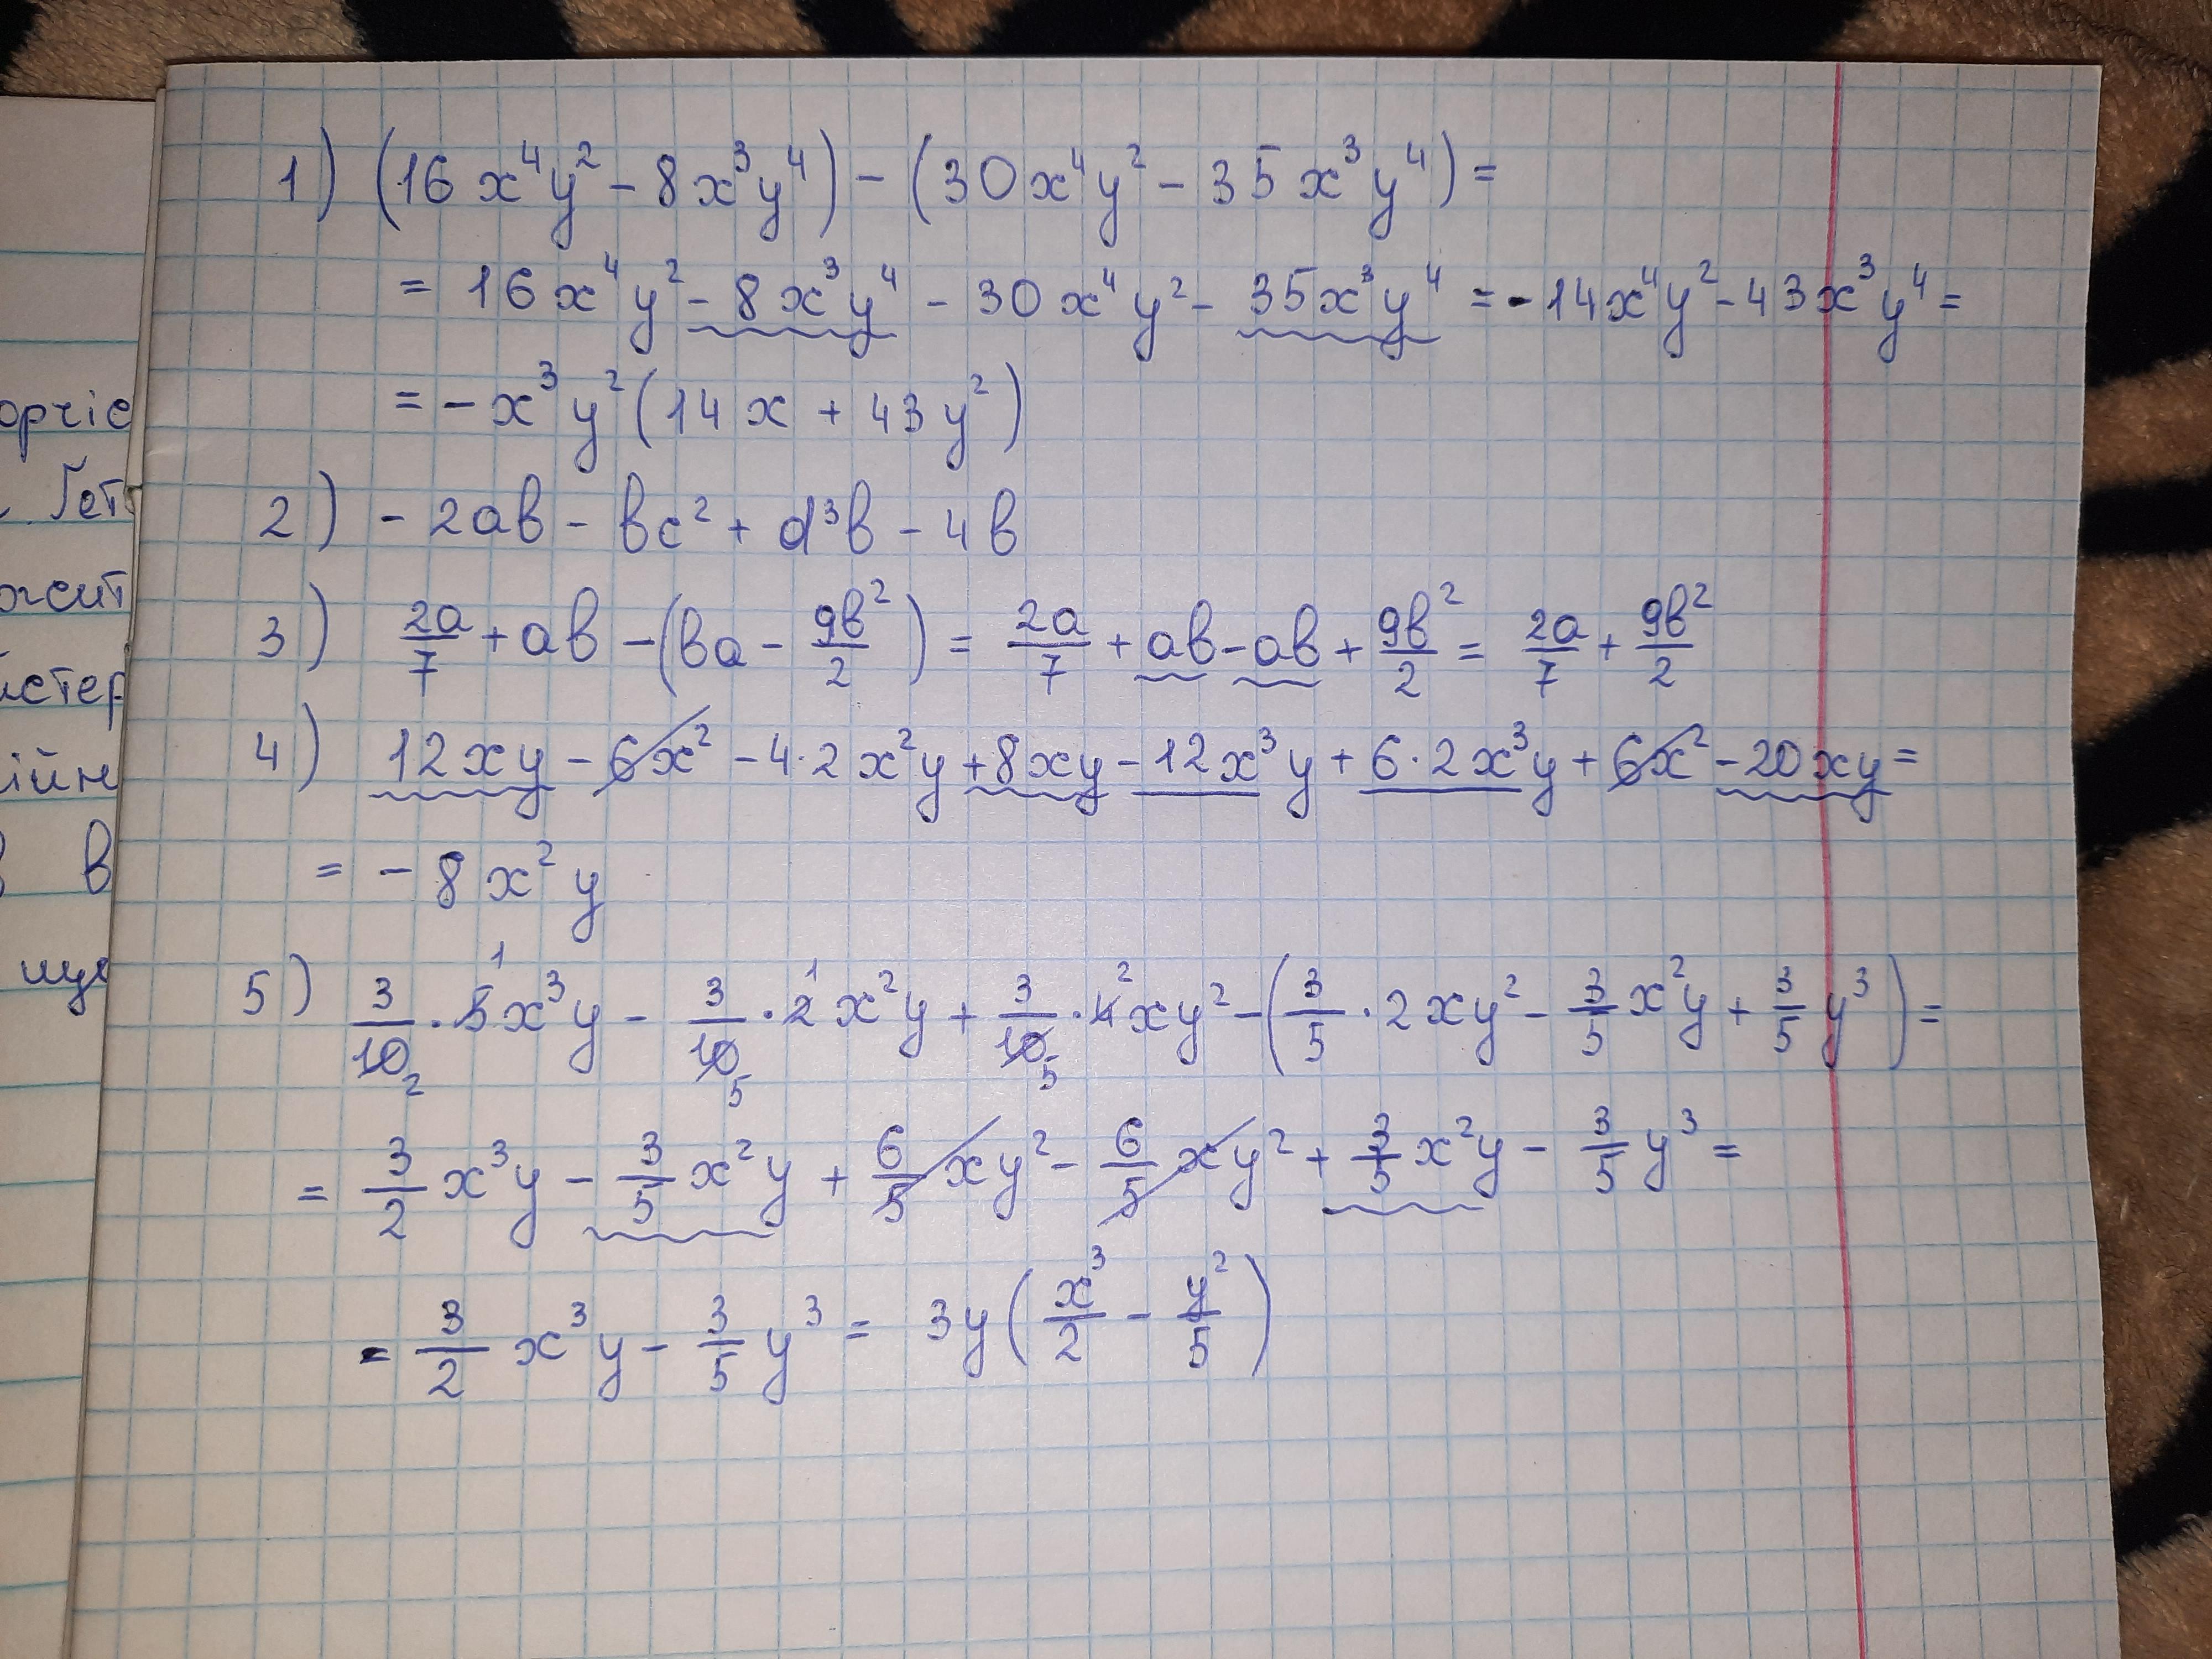 1) (16x⁴y² - 8x³y⁴) - (30x⁴y² - 35x³y⁴) =
= 16x⁴y² - 8x³y⁴ - 30x⁴y² - 35x³y⁴ = -14x⁴y² - 43x³y⁴ =
= -x³y²(14x + 43y²)
2) - 2ав - вс² + d³в - 4в
3) 2а/7 + ав - (ва - 9в²/2) = 2а/7 + ав - ав + 9в²/2 = 2а/7 + 9в²/2
4) 12xy - 6x² - 4·2x²y + 8xy - 12x³y + 6·2x³y + 6x² - 20xy =
= - 8x²y
5) 3/10 · 5x³y - 3/10 · 2x²y + 3/10 · 4xy² - (3/5 · 2xy² - 3/5 x²y + 3/5 y³) =
= 3/2 x³y - 3/5 x²y + 6/5 xy² - 6/5 xy² + 3/5 x²y - 3/5 y³ =
= 3/2 x³y - 3/5 y³ = 3y(x³/2 - y²/5)